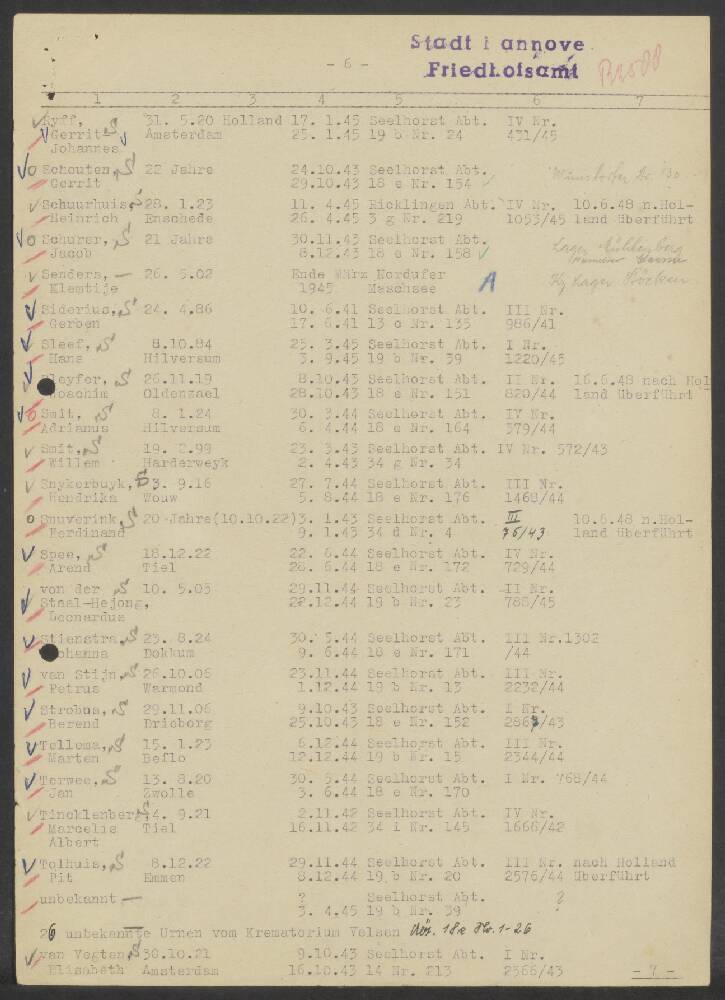 - 6 -
Stadt annove
Friedhofsamt
1 2 3 4 5 6 7
Ryff, 31. 5.20 Holland 17. 1.45 Seelhorst Abt. IV Nr.
Gerrit- Amsterdam 25. 1.45 19 b Nr. 24 431/45
Johannes
Schouten, 22 Jahre 24.10.43 Seelhorst Abt.
Gerrit 29.10.43 18 e Nr. 154
Schuurhuis, 28. 1.23 11. 4.45 Ricklingen Abt. IV Nr. 10.6.48 n.Hol-
Heinrich Enschede 26. 4.45 3 g Nr. 219 1053/45 land überführt
Schurer, 21 Jahre 30.11.43 Seelhorst Abt.
Jacob 8.12.43 18 e Nr. 158
Senders, 26. 5.02 Ende März Nordufer
Klemtije 1945 Maschsee A
Lager Stöcken
Siderius, 24. 4.86 10. 6.41 Seelhorst Abt. III Nr.
Gerben 17. 6.41 13 c Nr. 135 986/41
Sleef, 8.10.84 25. 3.45 Seelhorst Abt. I Nr.
Hans Hilversum 3. 9.45 19 b Nr. 39 1220/45
26.11.19 8.10.43 Seelhorst Abt. II Nr. 16.6.48 nach Hol
Joachim Oldenzael 28.10.43 18 e Nr. 151 820/44 land überführt
Smit, 8. 1.24 30. 3.44 Seelhorst Abt. IV Nr.
Adrianus Hilversum 6. 4.44 18 e Nr. 164 379/44
Smit, 19. 2.99 23. 3.43 Seelhorst Abt. IV Nr. 572/43
Willem Harderweyk 2. 4.43 34 g Nr. 34
Snykerbuyk, 3. 9.16 27. 7.44 Seelhorst Abt. III Nr.
Hendrika Wouw 5. 8.44 18 e Nr. 176 1468/44
Snuverink, 20 Jahre(10.10.22)3. 1.43 Seelhorst Abt. III 10.6.48 n.Hol-
Ferdinand 9. 1.43 34 d Nr. 4 76/43 land überführt
Spee, 18.12.22 22. 6.44 Seelhorst Abt. IV Nr.
Arend Tiel 28. 6.44 18 e Nr. 172 729/44
von der 10. 5.03 29.11.44 Seelhorst Abt. II Nr.
Staal-Hejong, 22.12.44 19 b Nr. 23 788/45
Leonardus
Stienstra, 23. 8.24 30. 5.44 Seelhorst Abt. III Nr.1302
Johanna Dokkum 9. 6.44 18 e Nr. 171 /44
van Stijn, 26.10.06 23.11.44 Seelhorst Abt. III Nr.
Petrus Warmond 1.12.44 19 b Nr. 13 2232/44
Strobus, 29.11.06 9.10.43 Seelhorst Abt. I Nr.
Berend Drieborg 25.10.43 18 e Nr. 152 2867/43
Tellema, 15. 1.23 6.12.44 Seelhorst Abt. III Nr.
Marten Beflo 12.12.44 19 b Nr. 15 2344/44
Terwee, 13. 8.20 30. 5.44 Seelhorst Abt. I Nr. 768/44
Jan Zwolle 3. 6.44 18 e Nr. 170
Tincklenberg, 4. 9.21 2.11.42 Seelhorst Abt. IV Nr.
Marcelis Tiel 16.11.42 34 i Nr. 145 1666/42
Albert
Tolhuis, 8.12.22 29.11.44 Seelhorst Abt. III Nr. nach Holland
Pit Emmen 8.12.44 19 b Nr. 20 2576/44 überführt
unbekannt ? Seelhorst Abt. ?
3. 4.45 19 b Nr. 39
26 unbekannte Urnen vom Krematorium Velsen 18e No. 1-26
van Vegten, 30.10.21 9.10.43 Seelhorst Abt. I Nr.
Elisabeth Amsterdam 16.10.43 14 Nr. 213 2566/43 - 7 -